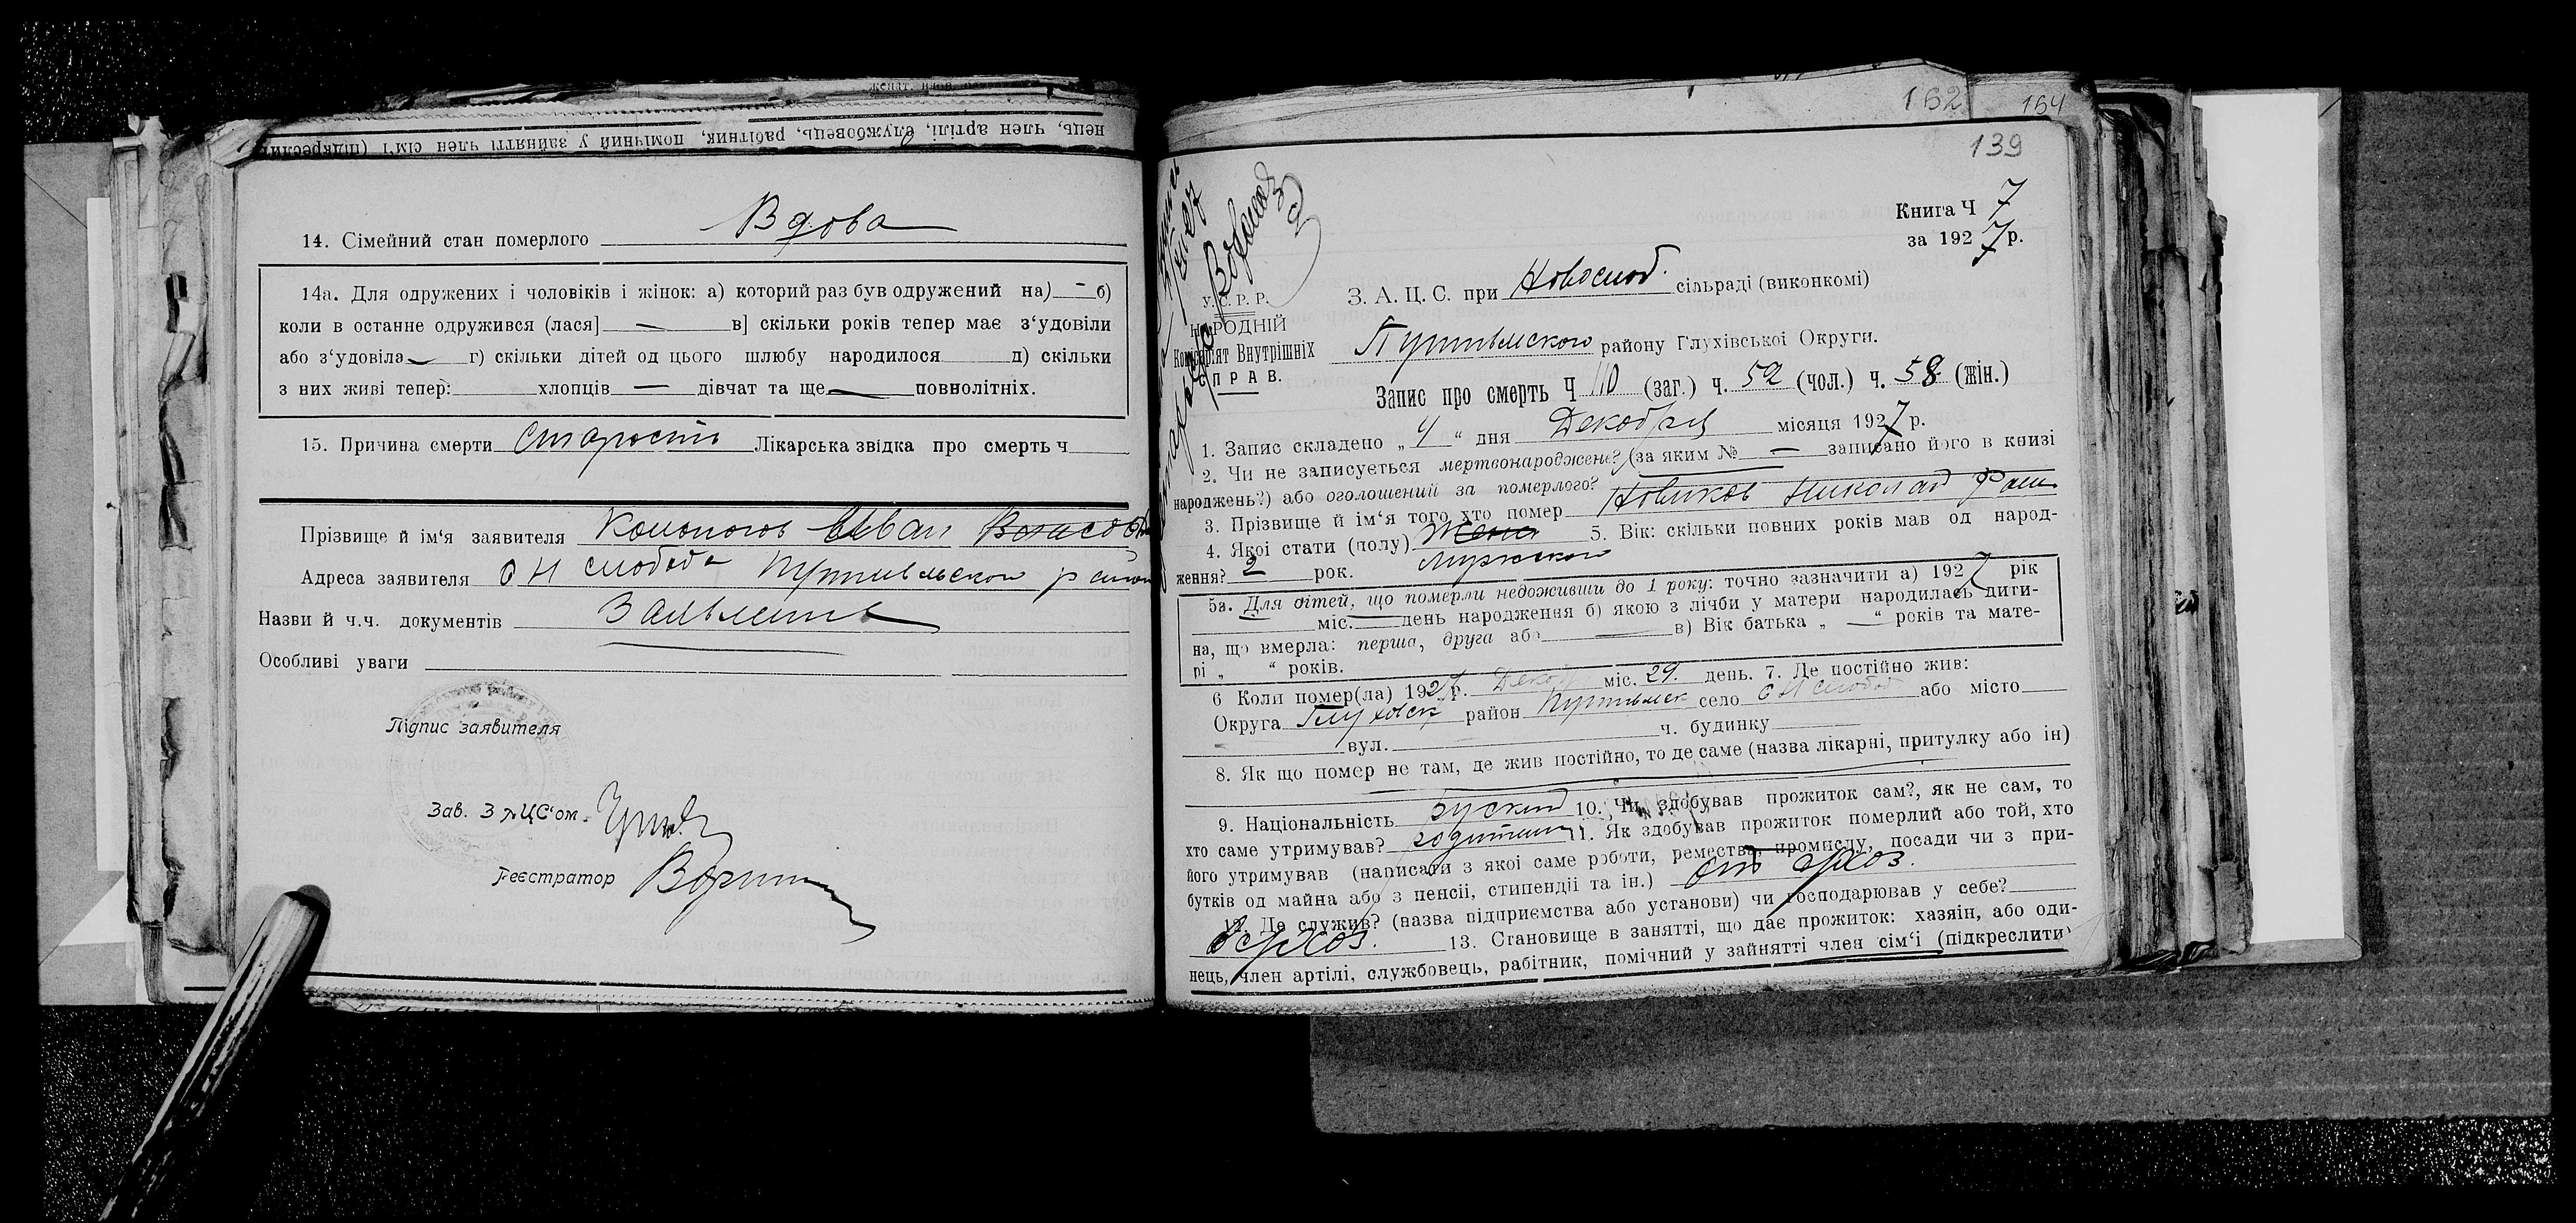 нець, член артілі, службовець, рабітник, помічний у зайнятті член сім'ї (підкреслит
14. Сімейний стан померлого Вдова
14а. Для одружених і чоловіків і жінок: а) которий раз був одружений на) – б)
коли в останне одружився (лася] — в] скільки років тепер має з'удовіли
або з'удовіла — г) скільки дітей од цього шлюбу народилося д) скільки
з них живі тепер: хлопців — дівчат та ще — повнолітніх.
15. Причина смерти Старость Лікарська звідка про смерть ч
Прізвище й ім'я заявителя Иван
Адреса заявителя с Н слобода Путивльского район
Назви й ч.ч. документів
Особливі уваги
Підпис заявителя
Зав. ЗАЦС'ом
Реєстратор
162 164
139
Книга Ч 7
за 1927 р.
У. С. Р. Р.
НАРОДНІЙ
Комісаріят Внутрішніх
СПРАВ.
З. А. Ц. С. при Новослоб. сільраді (виконкомі)
Путивльского району Глухівської Округи.
Запис про смерть Ч 110 (заг.) ч. 52 (чол.) ч. 58 (жін.)
1. Запис складено „ 4 “ дня Декабря місяця 1927 р.
2. Чи не записується мертвонароджене? (за яким № — записано його в книзі
народжень?) або оголошений за померлого?
3. Прізвище й ім'я того хто помер Новиков Николай
4. Якої стати (полу) Жена мужского 5. Вік: скільки повних років мав од народ-
ження? 2 рок.
5а. Для дітей, що померли недоживши до 1 року: точно зазначити а) 1927 рік
міс. — день народження б) якою з лічби у матери народилась дити-
на, що вмерла: перша, друга або — в) Вік батька „ — “ років та мате-
рі „ “ років.
6 Коли помер(ла) 192 р. Декаб міс. 29. день. 7. Де постійно жив:
Округа Глуховск район Путивльск село с Н слобод або місто
вул. ч. будинку
8. Як що помер не там, де жив постійно, то де саме (назва лікарні, притулку або ін)
9. Національність руский 10. Чи здобував прожиток сам?, як не сам, то
хто саме утримував? родители 11. Як здобував прожиток померлий або той, хто
його утримував (написати з якої саме роботи, ремества, промислу, посади чи з при-
бутків од майна або з пенсії, стипендії та ін.) от с/хоз.
12. Де служив? (назва підприємства або установи) чи господарював у себе?
в с/хоз. 13. Становище в занятті, що дає прожиток: хазяін, або оди-
нець, член артілі, службовець, рабітник, помічний у зайнятті член сім'ї (підкреслити)